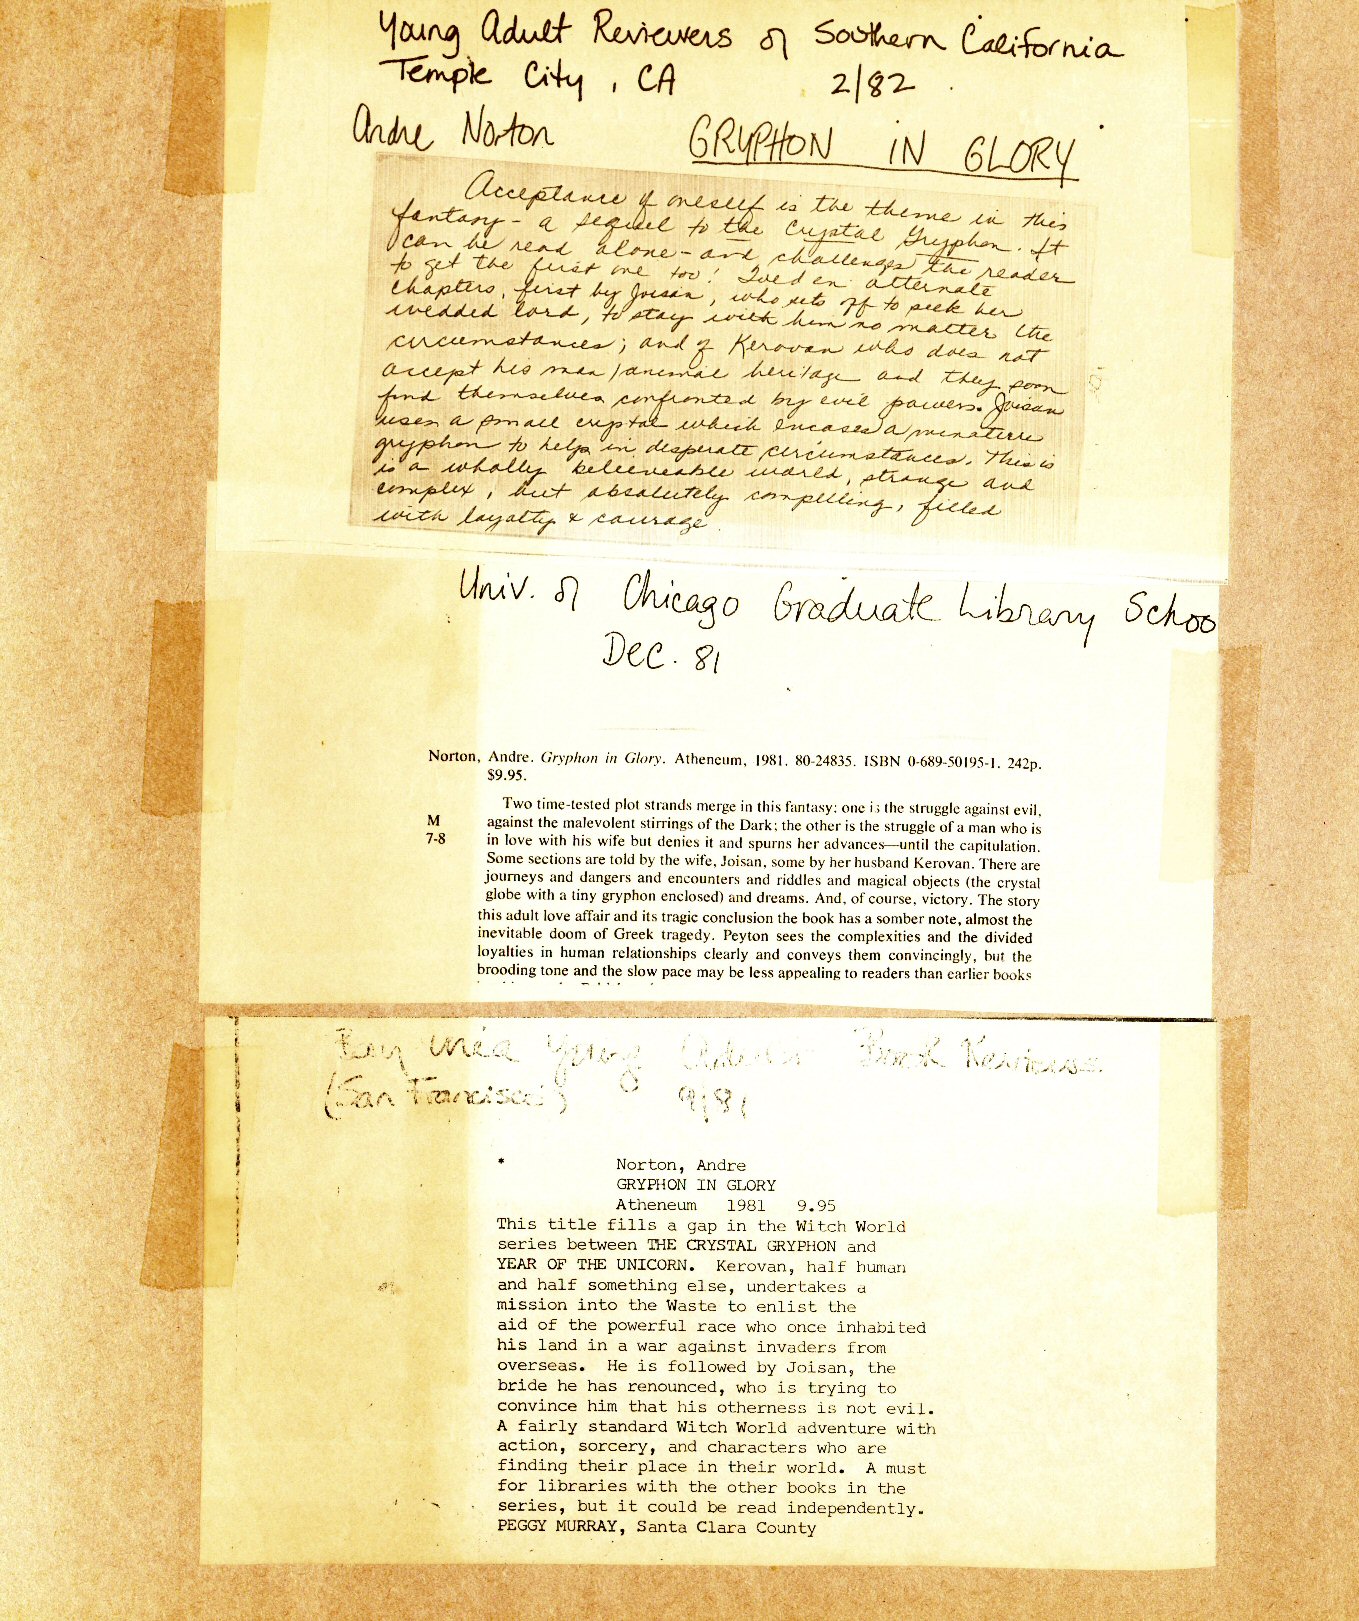 Young Adult Reviewers of Southern California
Temple City, CA 2/82
Andre Norton GRYPHON IN GLORY
Acceptance of oneself is the theme in this
fantasy - a sequel to the Crystal Gryphon. It
can be read alone - and challenges the reader
to get the first one too! Told in alternate
chapters, first by Joisan, who sets off to seek her
wedded lord, to stay with him no matter the
circumstances; and of Kerovan who does not
accept his man/animal heritage and they soon
find themselves confronted by evil powers. Joisan
uses a small crystal which encases a minature
gryphon to help in desperate circumstances. This is
is a wholly believeable world, strange and
complex, but absolutely compelling, filled
with loyalty & courage
Univ. of Chicago Graduate Library Schoo
Dec. 81
Norton, Andre. Gryphon in Glory. Atheneum, 1981. 80-24835. ISBN 0-689-50195-1. 242p.
$9.95.
Two time-tested plot strands merge in this fantasy: one is the struggle against evil,
M against the malevolent stirrings of the Dark; the other is the struggle of a man who is
7-8 in love with his wife but denies it and spurns her advances—until the capitulation.
Some sections are told by the wife, Joisan, some by her husband Kerovan. There are
journeys and dangers and encounters and riddles and magical objects (the crystal
globe with a tiny gryphon enclosed) and dreams. And, of course, victory. The story
this adult love affair and its tragic conclusion the book has a somber note, almost the
inevitable doom of Greek tragedy. Peyton sees the complexities and the divided
loyalties in human relationships clearly and conveys them convincingly, but the
brooding tone and the slow pace may be less appealing to readers than earlier books
Bay Area Young Adult Book Reviews
(San Francisco) 9/81
* Norton, Andre
GRYPHON IN GLORY
Atheneum 1981 9.95
This title fills a gap in the Witch World
series between THE CRYSTAL GRYPHON and
YEAR OF THE UNICORN. Kerovan, half human
and half something else, undertakes a
mission into the Waste to enlist the
aid of the powerful race who once inhabited
his land in a war against invaders from
overseas. He is followed by Joisan, the
bride he has renounced, who is trying to
convince him that his otherness is not evil.
A fairly standard Witch World adventure with
action, sorcery, and characters who are
finding their place in their world. A must
for libraries with the other books in the
series, but it could be read independently.
PEGGY MURRAY, Santa Clara County